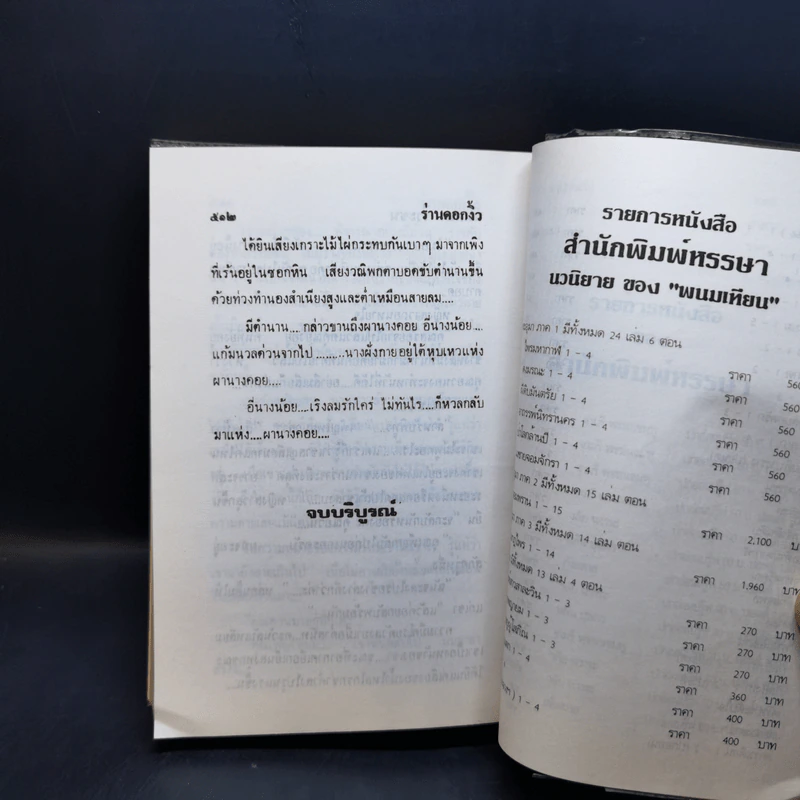 ๕๑๒ ร่านดอกงิ้ว
ได้ยินเสียงเกราะไม้ไผ่กระทบกันเบาๆ มาจากเพิง
ที่เร้นอยู่ในซอกหิน เสียงวณิพกตาบอดขับตำนานขึ้น
ด้วยท่วงทำนองสำเนียงสูงและต่ำเหมือนสายลม....
มีตำนาน.... กล่าวขานถึงผานางคอย อีนางน้อย....
แก้มนวลด่วนจากไป .........นางฝั่งกายอยู่ใต้หุบเหวแห่ง
ผานางคอย....
อีนางน้อย....เริงลมรักใคร่ ไม่ทันไร....ก็หวลกลับ
มาแห่ง....ผานางคอย....
จบบริบูรณ์
รายการหนังสือ
สำนักพิมพ์หรรษา
นวนิยาย ของ "พนมเทียน"
ภาค 1 มีทั้งหมด 24 เล่ม 6 ตอน
ไพรมหากาฬ 1 - 4 ราคา 560
1 - 4 ราคา 560
1 - 4 ราคา 560
1 - 4 ราคา 560
1 - 4 ราคา 560
จอมจักรา 1 - 4 ราคา 560
ภาค 2 มีทั้งหมด 15 เล่ม ตอน
1 - 15 ราคา 2,100 บาท
ภาค 3 มีทั้งหมด 14 เล่ม ตอน
1 - 14 ราคา 1,960 บาท
ทั้งหมด 13 เล่ม 4 ตอน
1 - 3 ราคา 270 บาท
1 - 3 ราคา 270 บาท
1 - 3 ราคา 270 บาท
1 - 4 ราคา 360 บาท
ราคา 400 บาท
1 - 4 ราคา 400 บาท